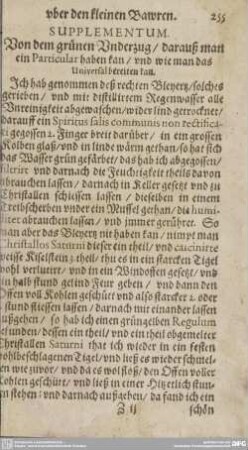 vber den kleinen Bawren. 255
SUPPLEMENTUM.
Von dem grünen Vnderzug / darauß man
ein Particular haben kan / vnd wie man das
Universal bereiten kan.
Ich hab genommen deß rechten Bleyertz / solches
gerieben / vnd mit distilirtem Regenwasser alle
Vnreinigkeit abgewaschen / wider lind getrocknet /
darauff ein Spiritus salis communis non rectifica-
gegossen 2. Finger breit darüber / in ein grossen
Kolben glaß / vnd in linde wärm gethan / so hat sich
das Wasser grün gefärbet / das hab ich abgegossen /
filtrirt vnd darnach die Feuchtigkeit theils davon
abrauchen lassen / darnach in Keller gesetzt vnd zu
Christallen schiessen lassen / dieselben in einem
Treibscherben vnder ein Muffel gethan / die humi-
tet abrauchen lassen / vnd jmmer gerühret. So
man aber das Bleyertz nit haben kan / nimpt man
Christallos Saturni dieser ein theil / vnd calcinirte
weisse Kiselstein 3. theil / thu es in ein starcken Tigel
wohl verlutirt / vnd in ein Windoffen gesetzt / vnd
ein halb stund gelind Feur geben / vnd dann den
Offen voll Kohlen geschüt vnd also starcker 2. oder
stund fliessen lassen / darnach mit einander lassen
außgehen / so hab ich einen grüngelben Regulum
gefunden / dessen ein theil / vnd ein theil obgemelter
Christallen Saturni that ich wieder in ein festen
wohlbeschlagenen Tigel / vnd ließ es wieder schmel-
zen wie zuvor / vnd da es wol floß / den Offen voller
Kohlen geschüt / vnd ließ in einer Hitz
stehen: vnd darnach außgehen / da fand ich ein
schön